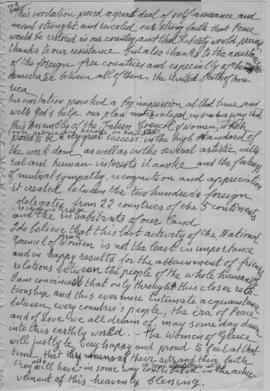 This invitation proved a great deal of self-assurance and
moral strength, and revealed our strong faith that Peace
would be restored in our country and that Liberty would prevail
thanks to our resistance. But also thanks to the assistance
of the foreign free countries and especially of the
democratic between all of them, the United States of Ame-
rica.
Our invitation provoked a big impression at that time and
with God's help our plan materialized in such a way that
this Assembly of the International Council of Women in Athens
proved to be a great success: in the high standard of
the work done, as well as in the several artistic cultu-
ral and human interests it awoke and the feelings
of mutual sympathy, recognition and appreciation
it created between the two hundreds foreign
delegates from 22 countries of the 5 continents
and the inhabitants of our land.
I do believe that this last activity of the National
Council of Women is not the least in importance
and in happy results for the attainment of friendly
relations between the people of the whole human
I am convinced that only through this closer rela-
tionship and thus ever more intimate acquaintance
between every countries' people, the era of Peace
and of Love we all dream of, may some day dawn
into this earthly world. The women of Greece
will justly be very happy and proud to feel at that
time that by means of their acts and their faith
they will have in some way contributed in the achie-
vement of this heavenly blessing.